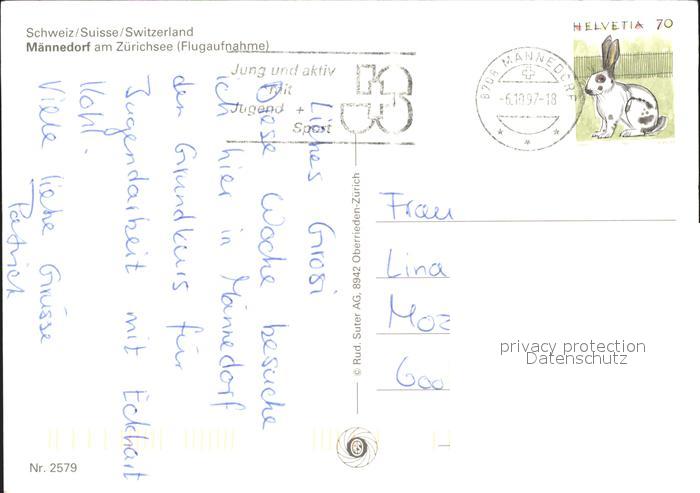 Schweiz/Suisse/Switzerland
Männedorf am Zürichsee (Flugaufnahme)
Jung und aktiv
mit
Jugend +
Sport
8708 MÄNNEDORF
-6.10.97-18
HELVETIA 70
Liebes Grosi
Diese Woche besuche
ich hier in Männedorf
den Grundkurs für
Jugendarbeit mit Eckhart
Kohl.
Viele liebe Grüsse
Patrick
© Rud. Suter AG, 8942 Oberrieden-Zürich
Frau
Lina
Moz
Goo
privacy protection
Datenschutz
Nr. 2579